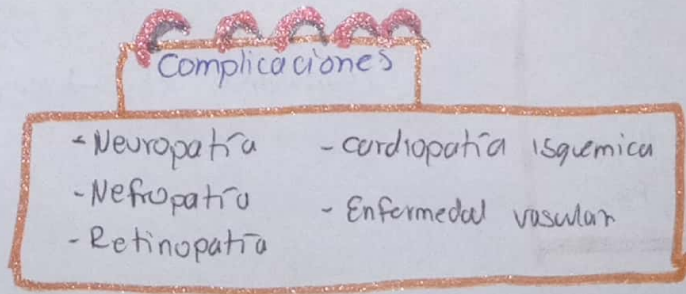 Complicaciones
- Neuropatía
- Nefropatía
- Retinopatía
- Cardiopatía isquemica
- Enfermedad vascular